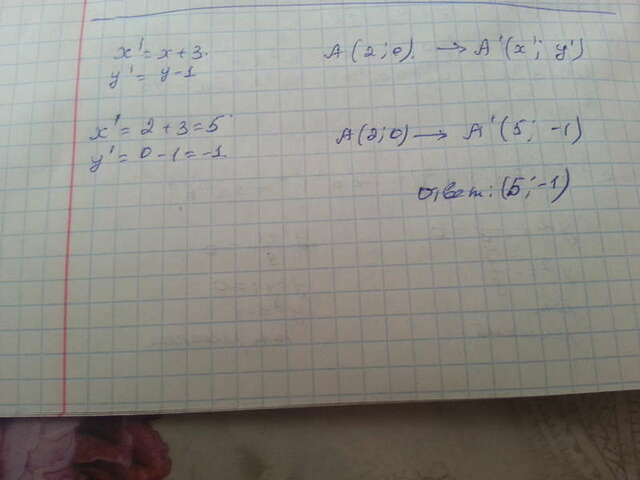 x' = x + 3. A(2;0). → A'(x'; y')
y' = y - 1
x' = 2 + 3 = 5 A(2;0) → A'(5; -1)
y' = 0 - 1 = -1.
Ответ: (5; -1)